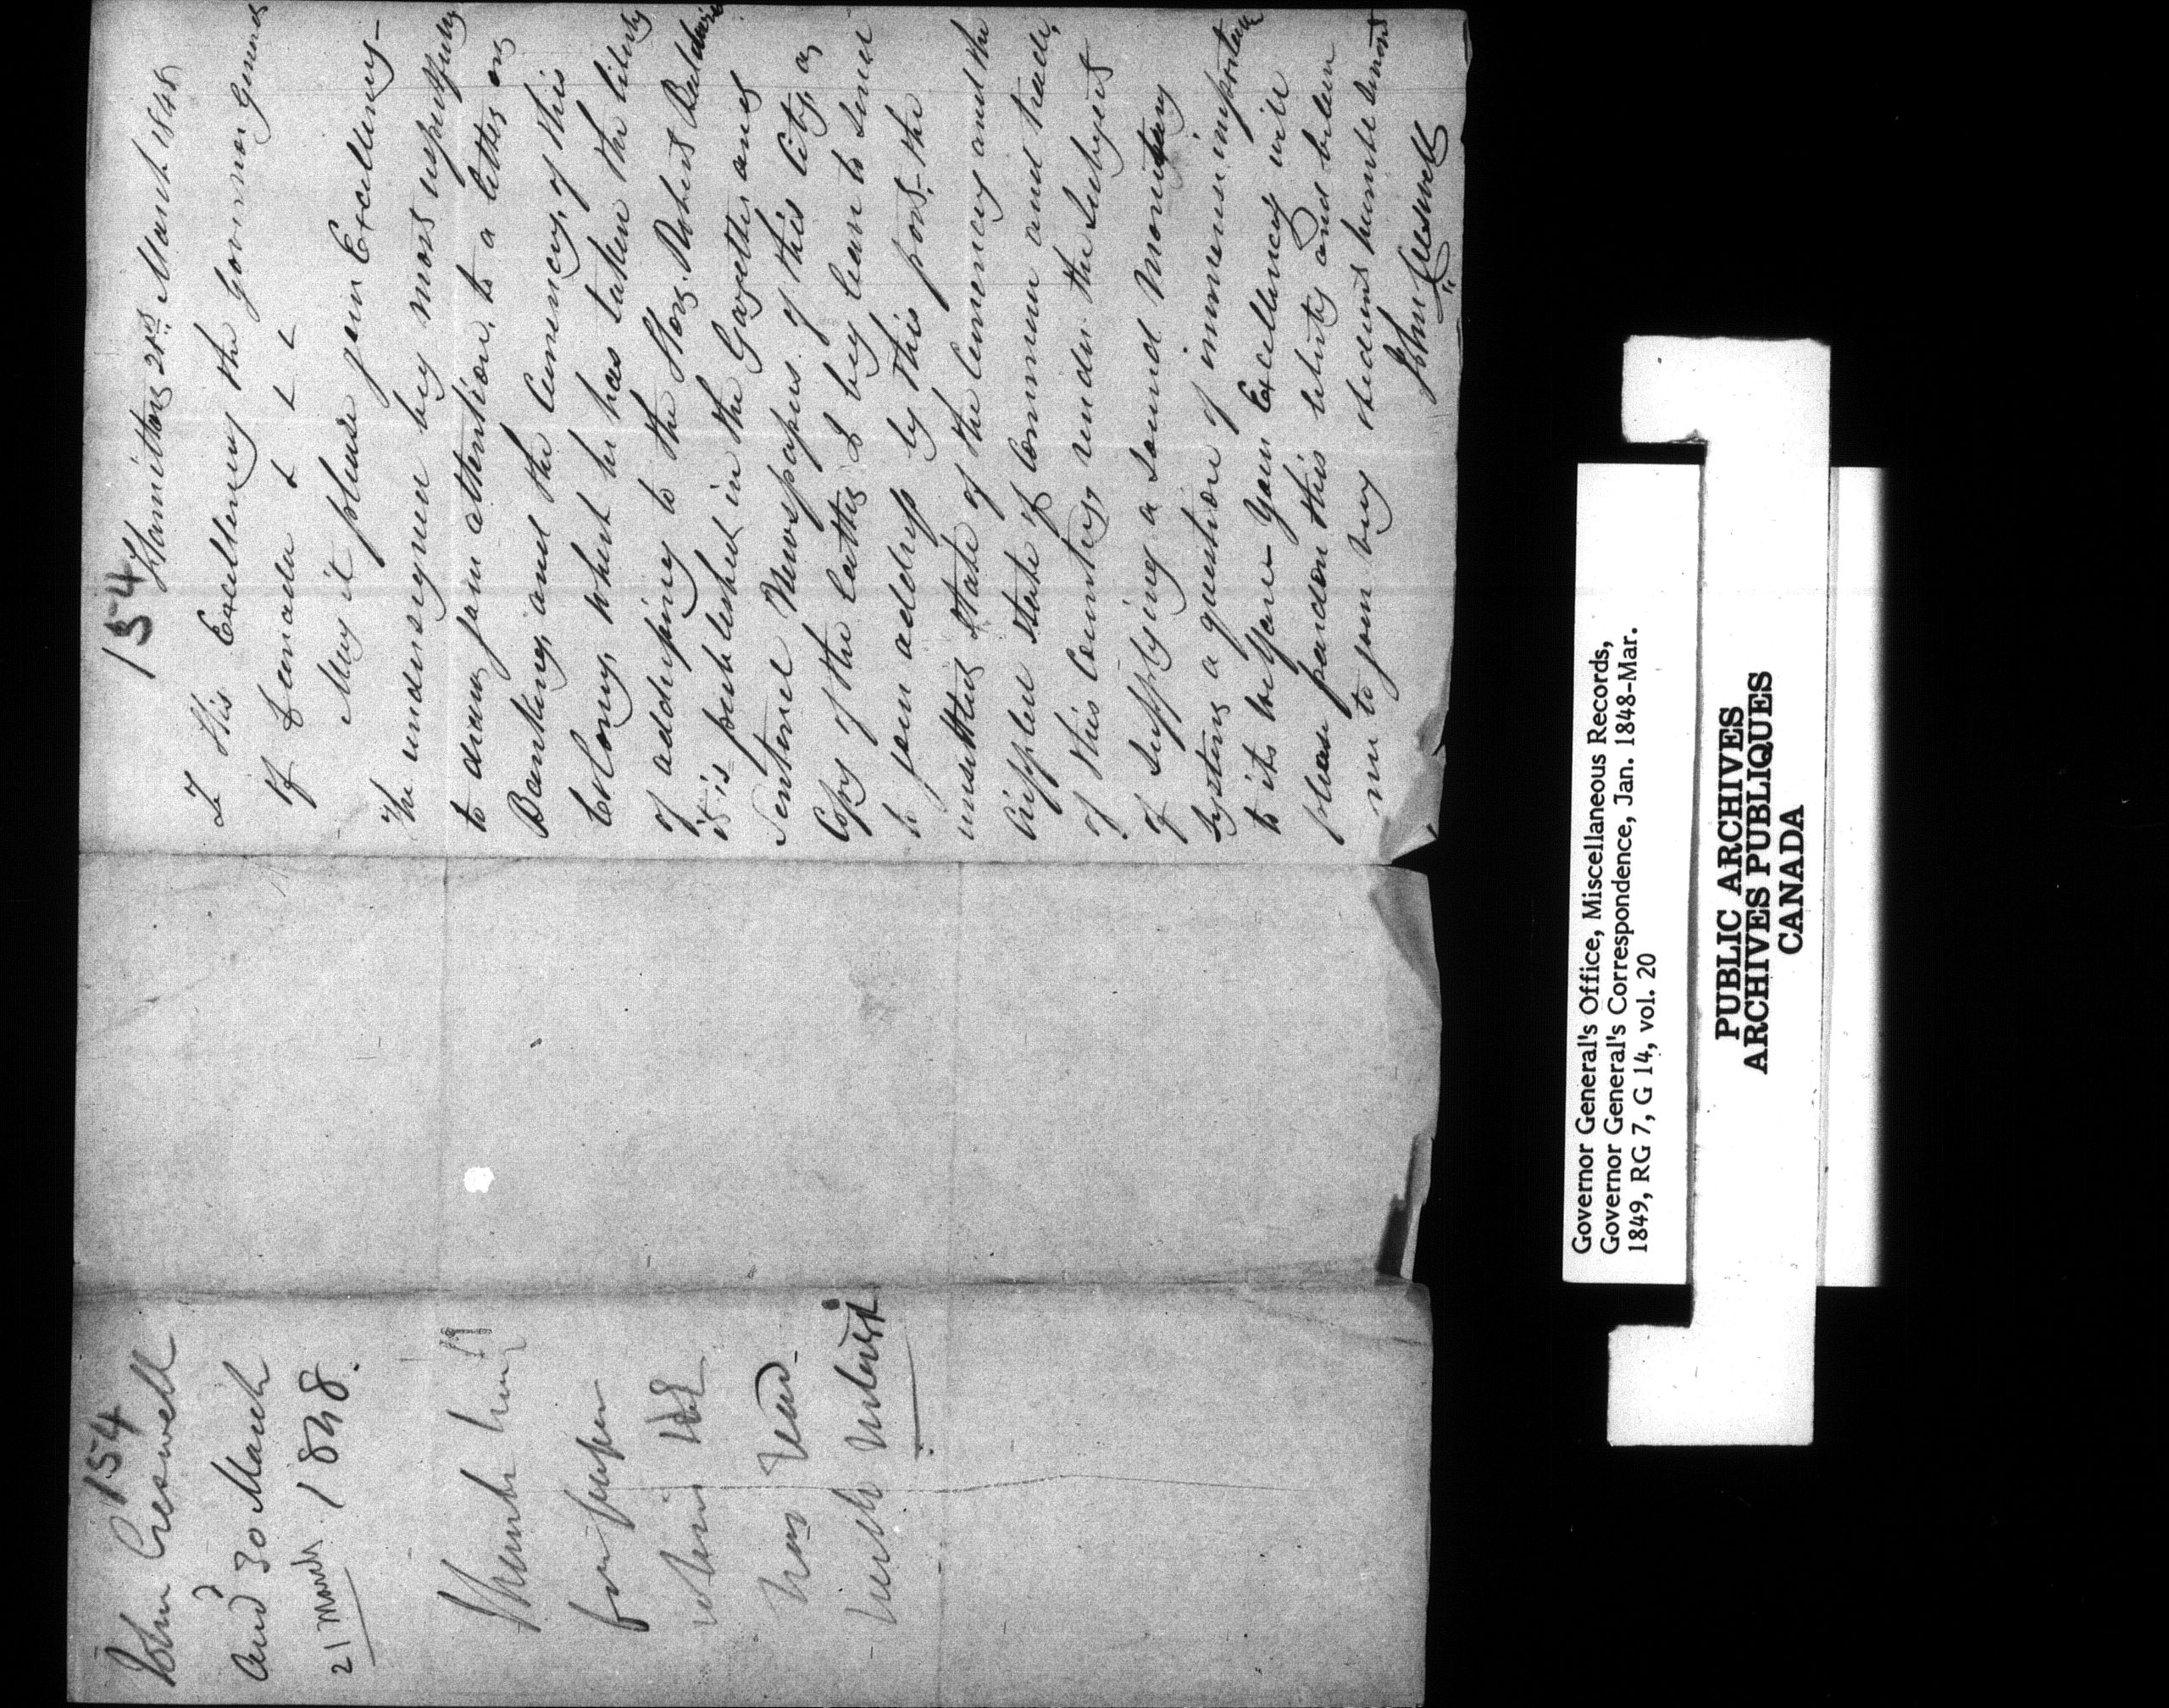 154
Hamilton 21st March 1848
To His Excellency the Governor General
of Canada & & &
May it please your Excellency-
The undersigned beg most respectfully
to draw your attention, to a letter on
Banking, and the Currency, of this
Colony, which he has taken the liberty
of addressing to the Hon. Robert Baldwin
it is published in the Gazette, and
Sentinel Newspapers of this City, a
Copy of the letter I beg leave to send
to your address by this post- the
unsettled state of the Currency and the
Crippled state of Commerce and trade,
of this Country, render the Subject
of Supplying a Sound Monetary
System, a question of immense importance
to its welfare- Your Excellency will
please pardon this liberty and believe
me to your very obedient humble Servant
John Creswell
154
John Creswell
Ansd 30 March
21 March 1848.
Thank him
for paper
which HE
has read-
with interest
Governor General's Office, Miscellaneous Records,
Governor General's Correspondence, Jan. 1848-Mar.
1849, RG 7, G 14, vol. 20
PUBLIC ARCHIVES
ARCHIVES PUBLIQUES
CANADA